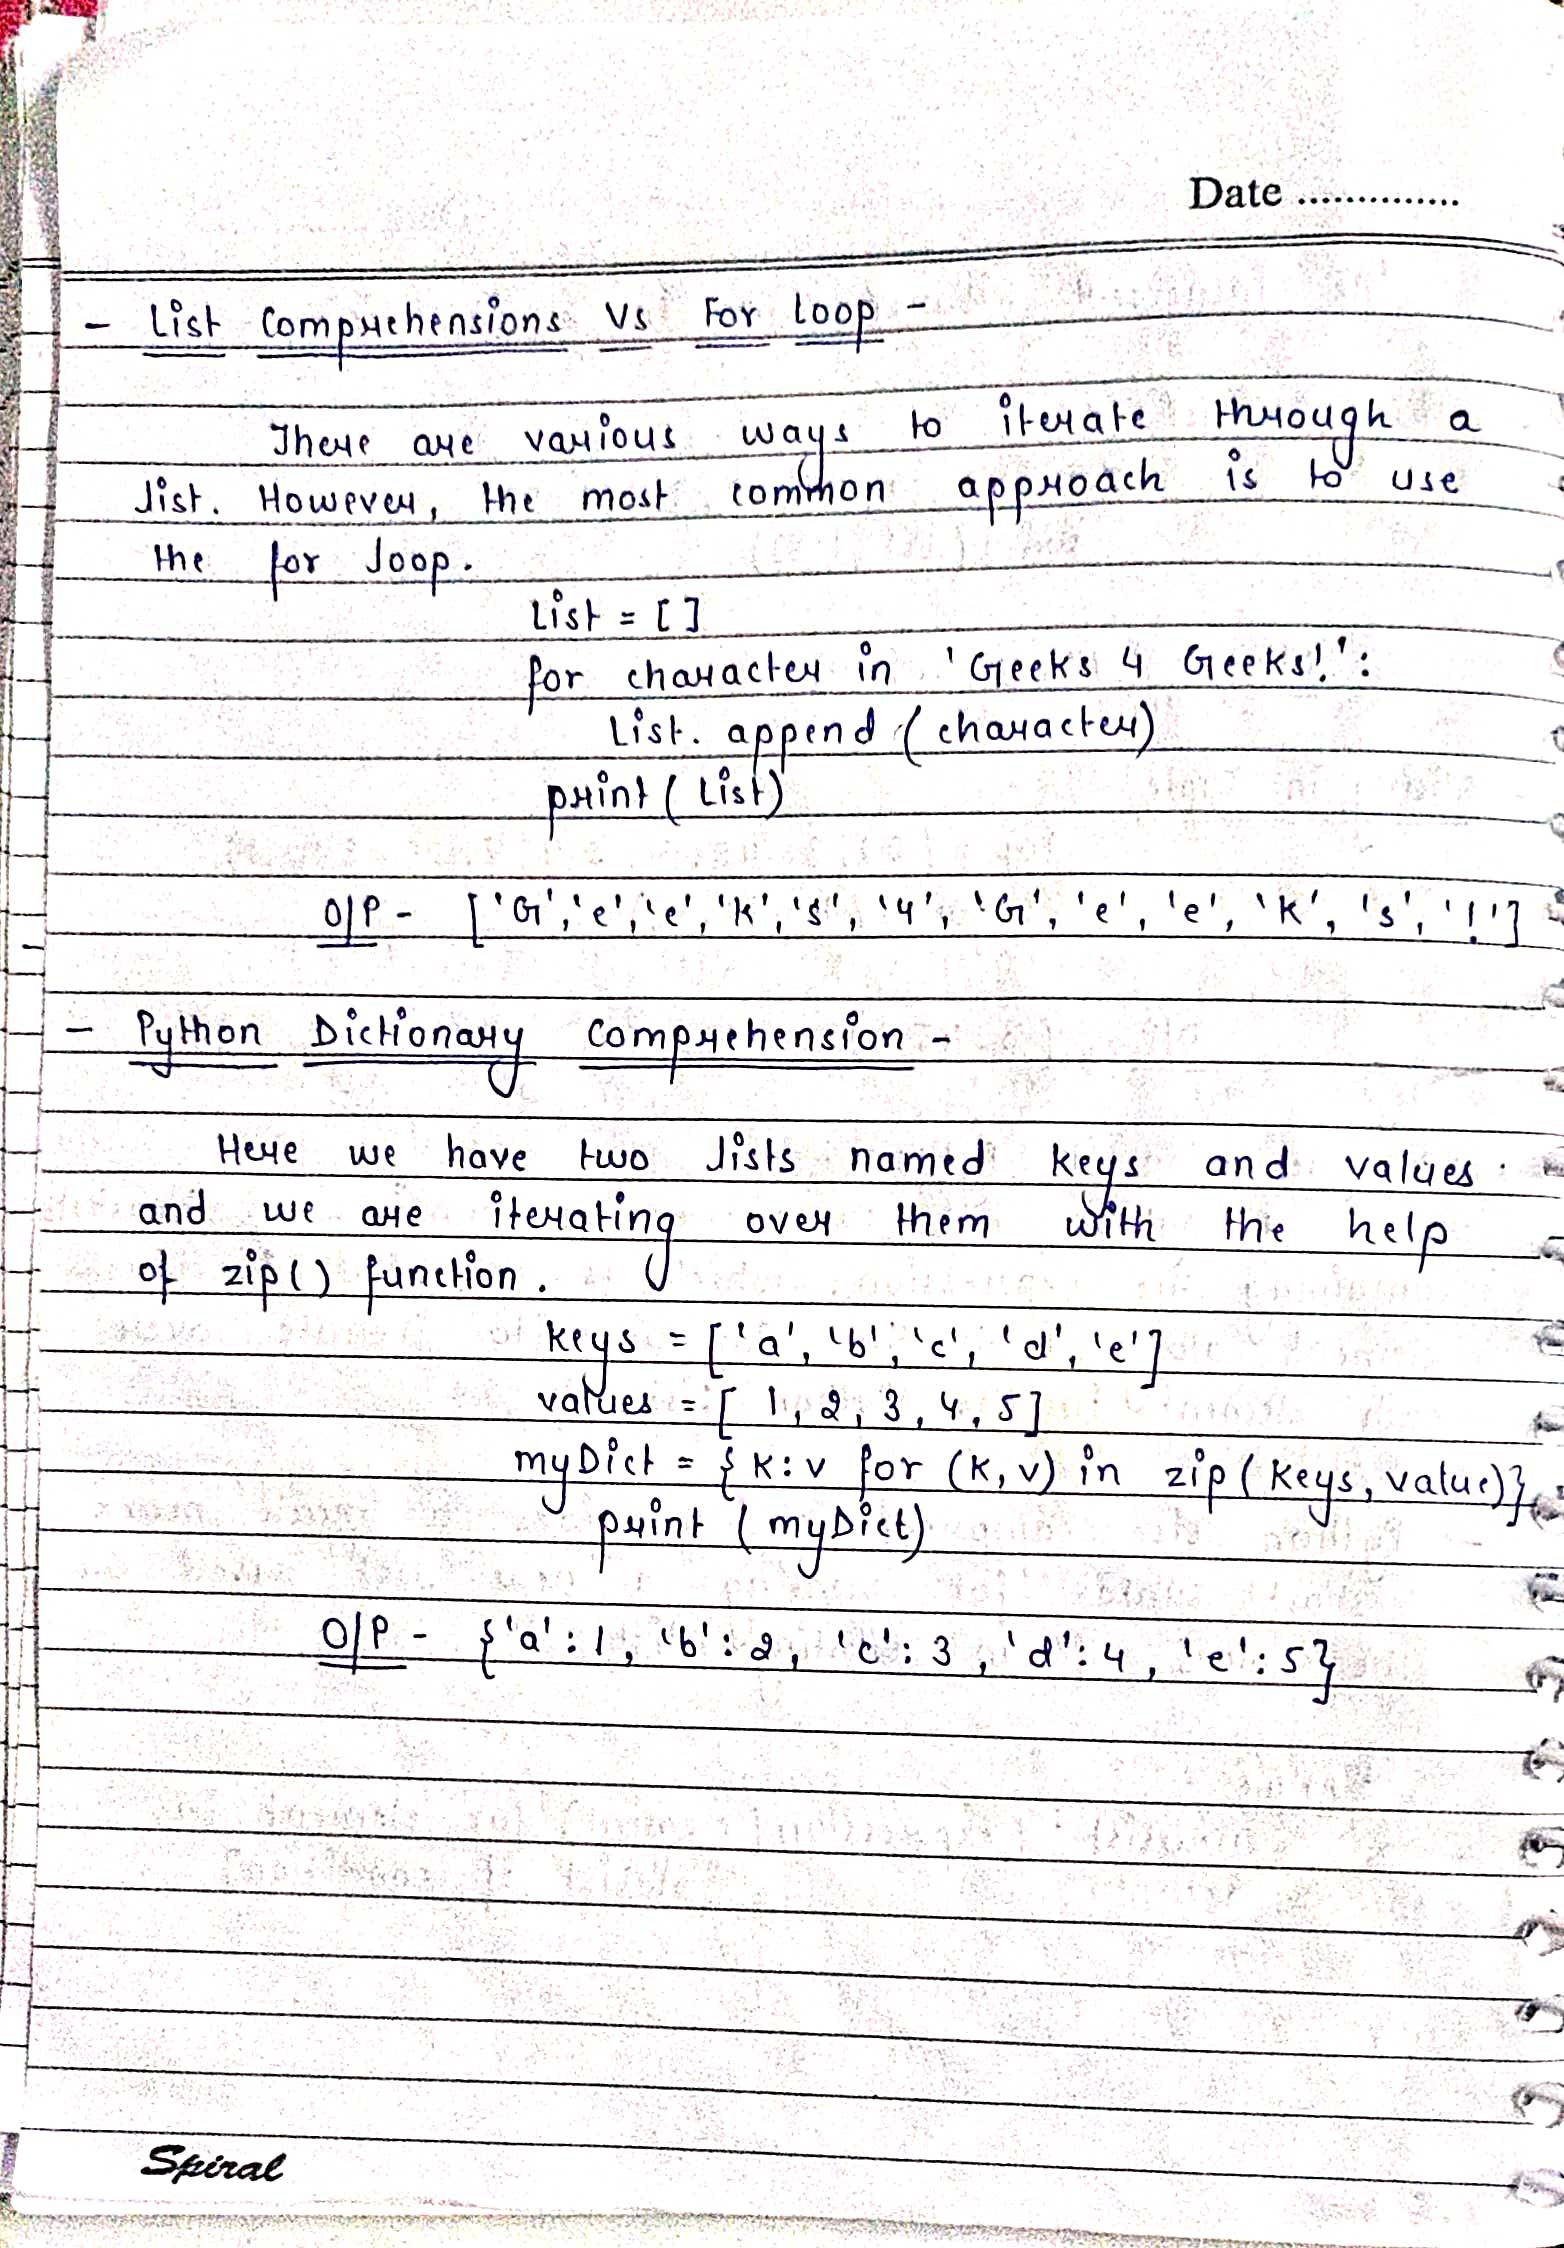 Date ..............
- List Comprehensions Vs For Loop -
There are various ways to iterate through a
list. However, the most common approach is to use
the for loop.
List = []
for character in 'Geeks 4 Geeks!':
List. append (character)
print (List)
O/P - ['G','e','e','k','s', '4', 'G', 'e', 'e', 'k', 's', '!']
- Python Dictionary Comprehension -
Here we have two lists named keys and values.
and we are iterating over them with the help
of zip() function.
keys = ['a', 'b', 'c', 'd', 'e']
values = [ 1, 2, 3, 4, 5]
myDict = {k:v for (k, v) in zip (keys, value)}
print (myDict)
O/P - {'a':1, 'b':2, 'c':3, 'd':4, 'e':5}
Spiral